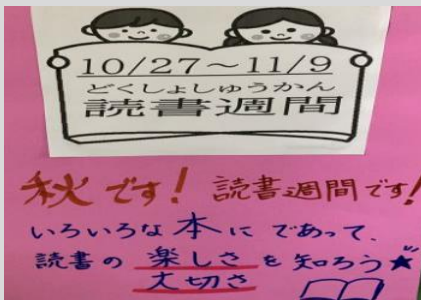 10/27～11/9
どくしょしゅうかん
読書週間
秋です! 読書週間です!
いろいろな本にであって、
読書の楽しさを知ろう★
大切さ